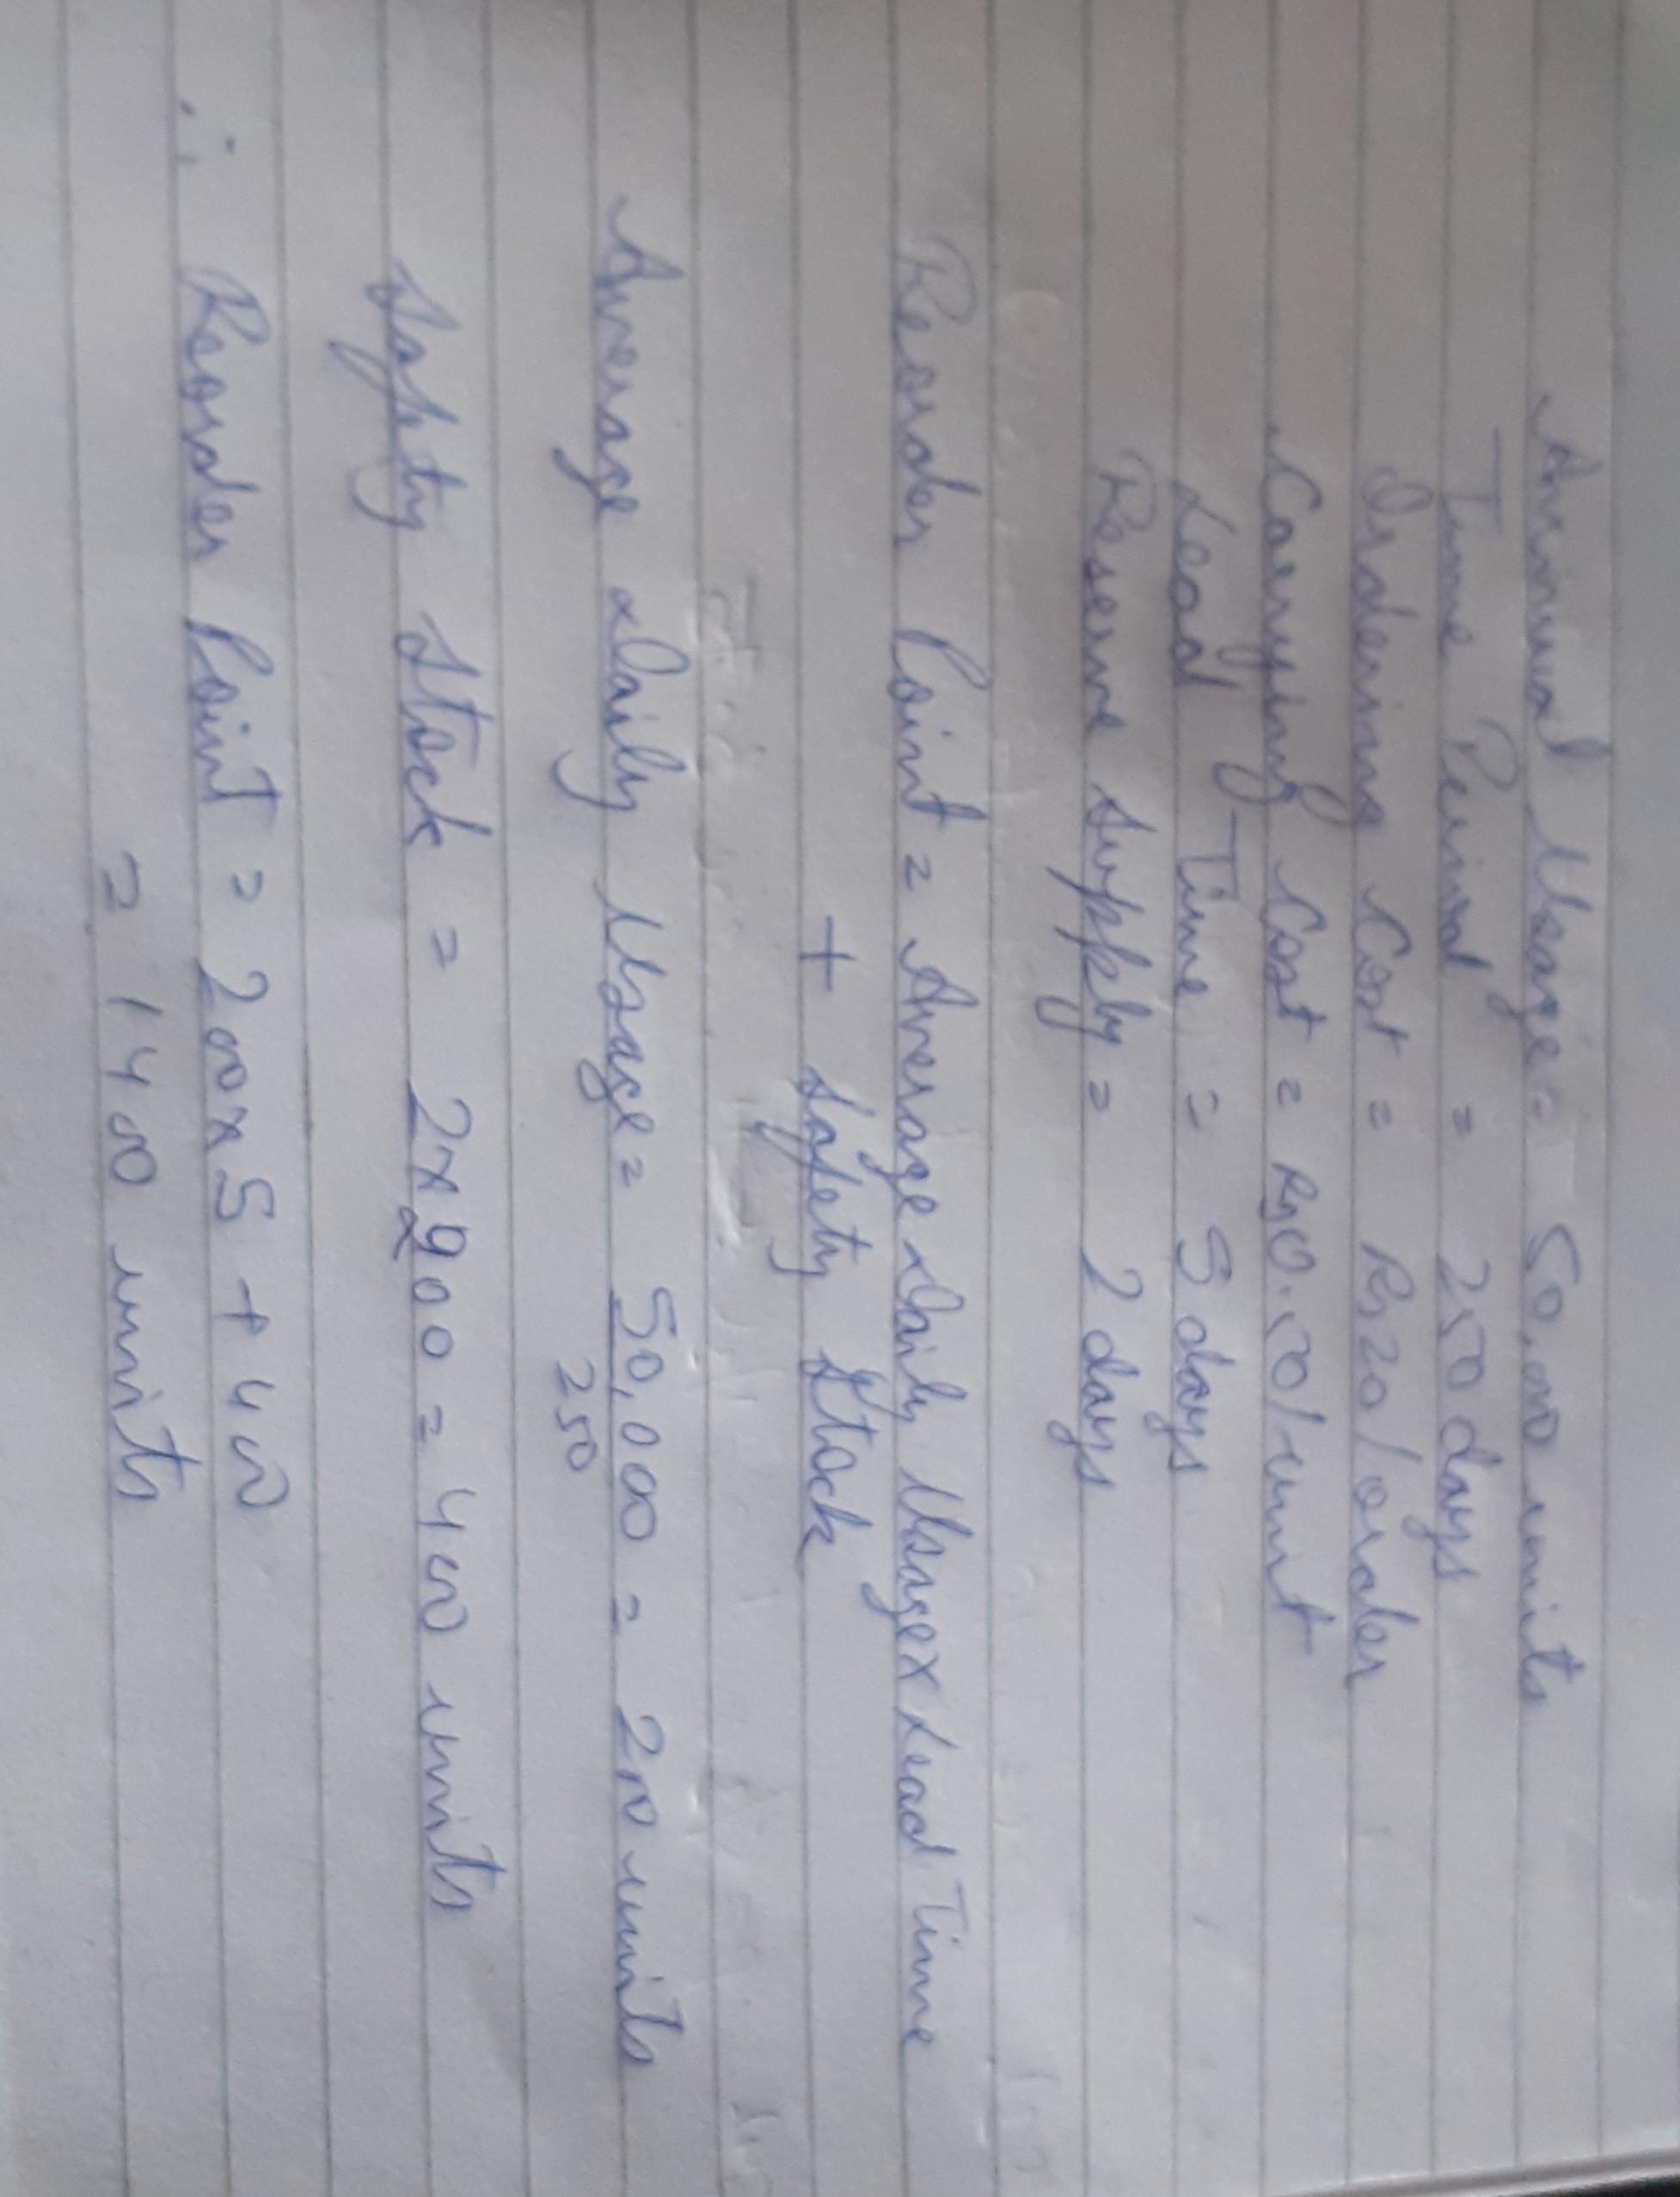 Annual Usage = 50,000 units
Time Period = 250 days
Ordering Cost = Rs 20/order
Carrying Cost = Rs 0.50/unit
Lead Time = 5 days
Reserve supply = 2 days
Reorder Point = Average Daily Usage x Lead Time
+ Safety Stock
Average Daily Usage = 50,000 / 250 = 200 units
Safety Stock = 2 x 200 = 400 units
∴ Reorder Point = 200 x 5 + 400
= 1400 units